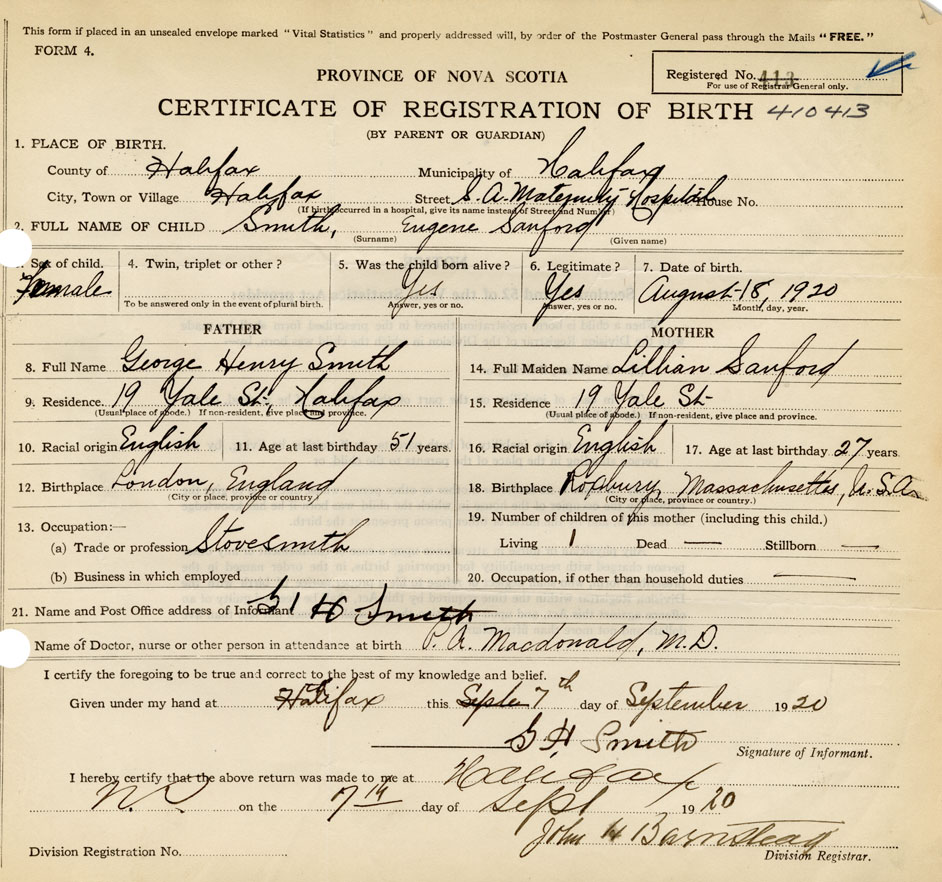 This form if placed in an unsealed envelope marked "Vital Statistics" and properly addressed will, by order of the Postmaster General pass through the Mails "FREE."
FORM 4.
PROVINCE OF NOVA SCOTIA
Registered No. 413
For use of Registrar General only.
CERTIFICATE OF REGISTRATION OF BIRTH 410413
(BY PARENT OR GUARDIAN)
1. PLACE OF BIRTH.
County of Halifax Municipality of Halifax
City, Town or Village Halifax Street S. A. Maternity Hospital House No.
(If birth occurred in a hospital, give its name instead of Street and Number)
2. FULL NAME OF CHILD Smith, Eugene Sanford
(Surname) (Given name)
3. Sex of child. 4. Twin, triplet or other? 5. Was the child born alive? 6. Legitimate? 7. Date of birth.
male Yes Yes August 18, 1920
To be answered only in the event of plural birth. Answer, yes or no. Answer, yes or no. Month, day, year.
FATHER MOTHER
8. Full Name George Henry Smith 14. Full Maiden Name Lillian Sanford
9. Residence. 19 Yale St., Halifax 15. Residence 19 Yale St
(Usual place of abode.) If non-resident, give place and province. (Usual place of abode.) If non-resident, give place and province.
10. Racial origin English 11. Age at last birthday 51 years. 16. Racial origin English 17. Age at last birthday 27 years.
12. Birthplace London, England 18. Birthplace Roxbury, Massachusetts, U.S.A.
(City or place, province or country.) (City or place, province or country.)
13. Occupation:— 19. Number of children of this mother (including this child.)
(a) Trade or profession Stovesmith Living 1 Dead — Stillborn —
(b) Business in which employed 20. Occupation, if other than household duties —
21. Name and Post Office address of Informant G H Smith
Name of Doctor, nurse or other person in attendance at birth P. A. Macdonald, M.D.
I certify the foregoing to be true and correct to the best of my knowledge and belief.
Given under my hand at Halifax this 7th day of September 1920
G H Smith
Signature of Informant.
I hereby certify that the above return was made to me at Halifax
N.S. on the 7th day of Sept 1920
John H Barnstead
Division Registration No. Division Registrar.